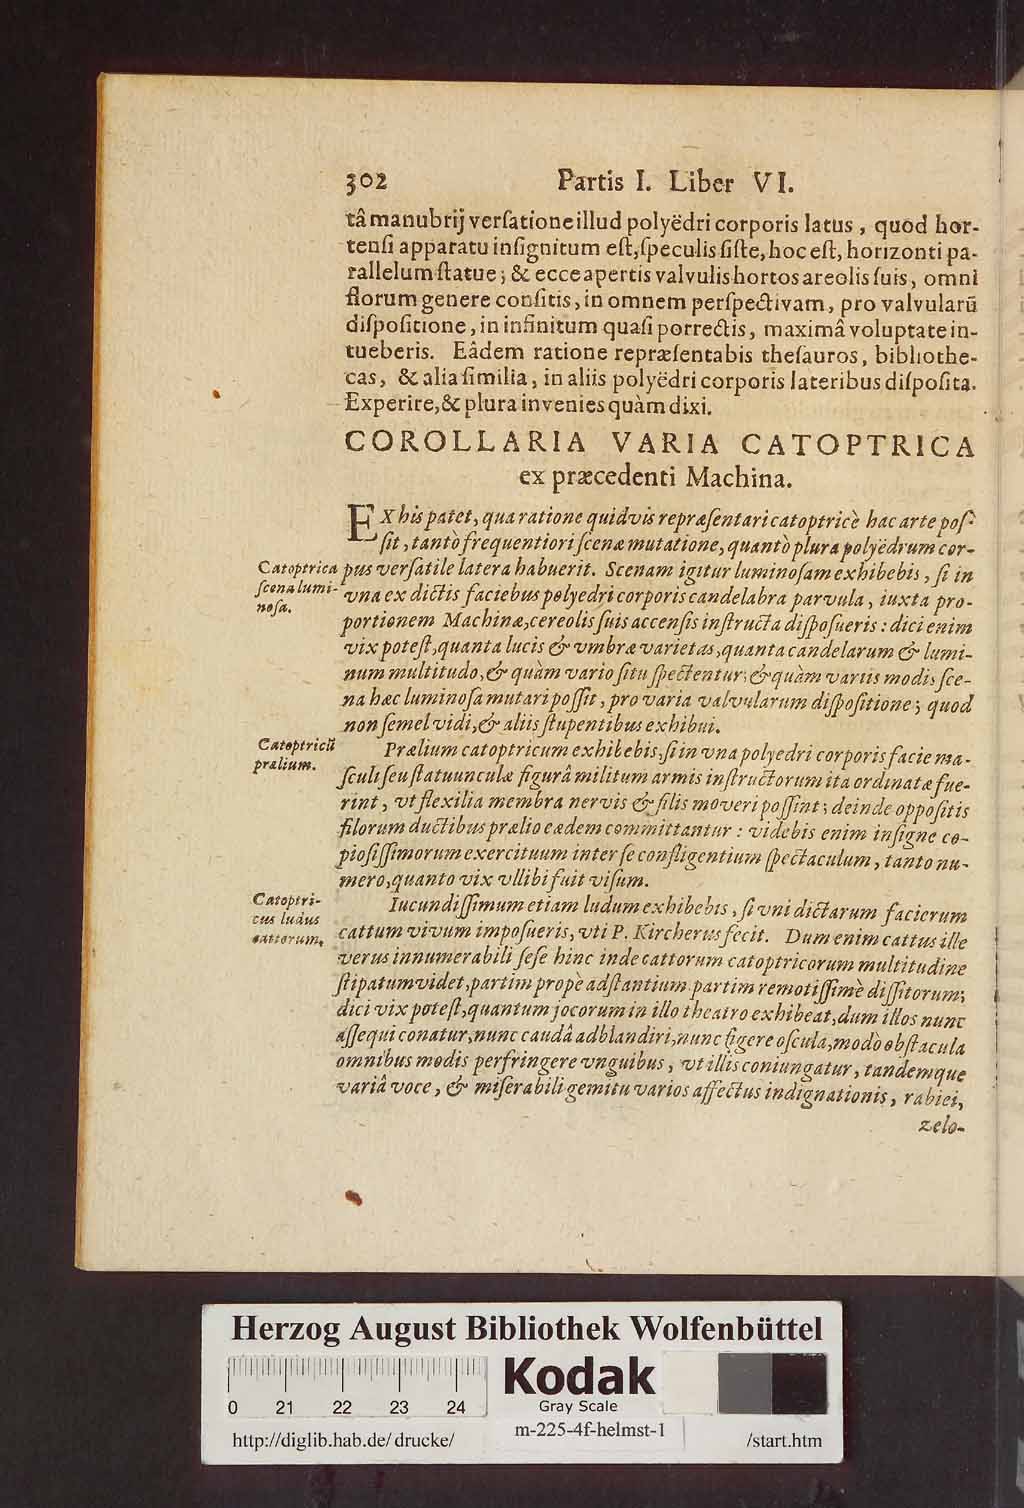 302 Partis I. Liber VI.
tâ manubrij verſatione illud polyëdri corporis latus, quod hor-
tenſi apparatu inſignitum eſt, ſpeculis ſiſte, hoc eſt, horizonti pa-
rallelum ſtatue; & ecce apertis valvulis hortos areolis ſuis, omni
florum genere conſitis, in omnem perſpectivam, pro valvularũ
diſpoſitione, in infinitum quaſi porrectis, maximâ voluptate in-
tueberis. Eâdem ratione repræſentabis theſauros, bibliothe-
cas, & alia ſimilia, in aliis polyëdri corporis lateribus diſpoſita.
Experire, & plura invenies quàm dixi.
COROLLARIA VARIA CATOPTRICA
ex præcedenti Machina.
EX his patet, qua ratione quidvis repræſentari catoptricè hac arte poſ-
ſit, tantò frequentiori ſcenæ mutatione, quantò plura polyëdrum cor-
Catoptrica
ſcena lumi-
noſa.
pus verſatile latera habuerit. Scenam igitur luminoſam exhibebis, ſi in
vna ex dictis faciebus polyedri corporis candelabra parvula, iuxta pro-
portionem Machinæ, cereolis ſuis accenſis inſtructa diſpoſueris: dici enim
vix poteſt, quanta lucis & vmbræ varietas, quanta candelarum & lumi-
num multitudo, & quàm vario ſitu ſpectentur; & quàm variis modis ſce-
na hæc luminoſa mutari poſſit, pro varia valvularum diſpoſitione; quod
non ſemel vidi, & aliis ſtupentibus exhibui.
Catoptricũ
prælium.
Prælium catoptricum exhibebis, ſi in vna polyedri corporis facie ma-
ſculi ſeu ſtatuunculæ figurâ militum armis inſtructorum ita ordinatæ fue-
rint, vt flexilia membra nervis & filis moveri poſſint; deinde oppoſitis
filorum ductibus prælio eædem committantur: videbis enim inſigne co-
pioſiſſimorum exercituum inter ſe confligentium ſpectaculum, tanto nu-
mero, quanto vix vllibi fuit viſum.
Catoptri-
cus ludus
cattorum.
Iucundiſſimum etiam ludum exhibebis, ſi vni dictarum facierum
cattum vivum impoſueris, vti P. Kircherus fecit. Dum enim cattus ille
verus innumerabili ſeſe hinc inde cattorum catoptricorum multitudine
ſtipatum videt, partim propè adſtantium partim remotiſſimè diſſitorum;
dici vix poteſt, quantum jocorum in illo theatro exhibeat, dum illos nunc
aſſequi conatur, nunc caudâ adblandiri, nunc figere oſcula, modò obſtacula
omnibus modis perfringere vnguibus, vt illis coniungatur, tandemque
variâ voce, & miſerabili gemitu varios affectus indignationis, rabiei,
zelo-
Herzog August Bibliothek Wolfenbüttel
0 21 22 23 24
Kodak
Gray Scale
http://diglib.hab.de/drucke/ m-225-4f-helmst-1 /start.htm